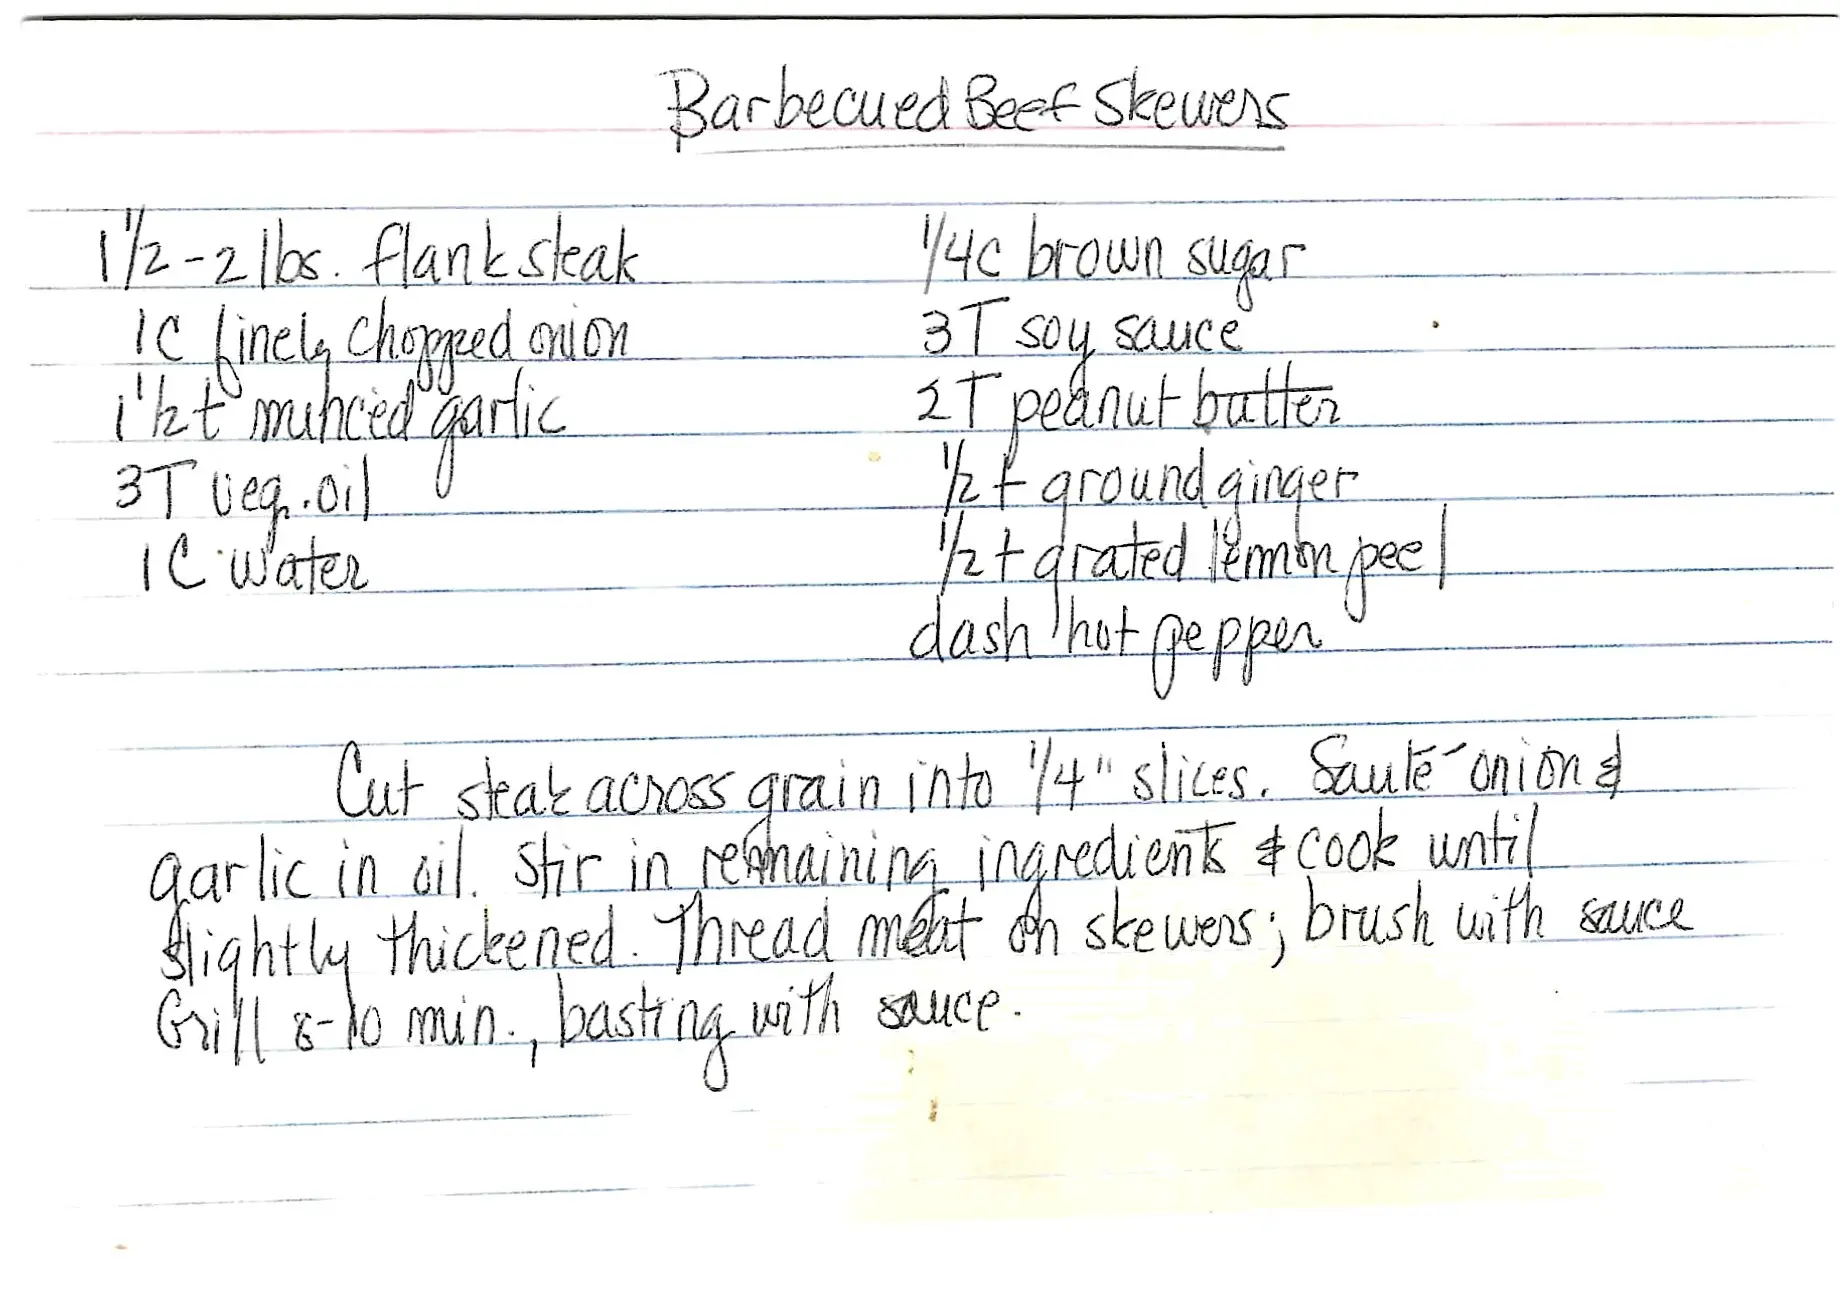 Barbecued Beef Skewers
1 1/2 - 2 lbs. flank steak
1 C finely chopped onion
1 1/2 t minced garlic
3 T veg. oil
1 C water
1/4 c brown sugar
3 T soy sauce
2 T peanut butter
1/2 t ground ginger
1/2 t grated lemon peel
dash hot pepper
Cut steak across grain into 1/4" slices. Sauté onion &
garlic in oil. Stir in remaining ingredients & cook until
slightly thickened. Thread meat on skewers; brush with sauce
Grill 8-10 min., basting with sauce.